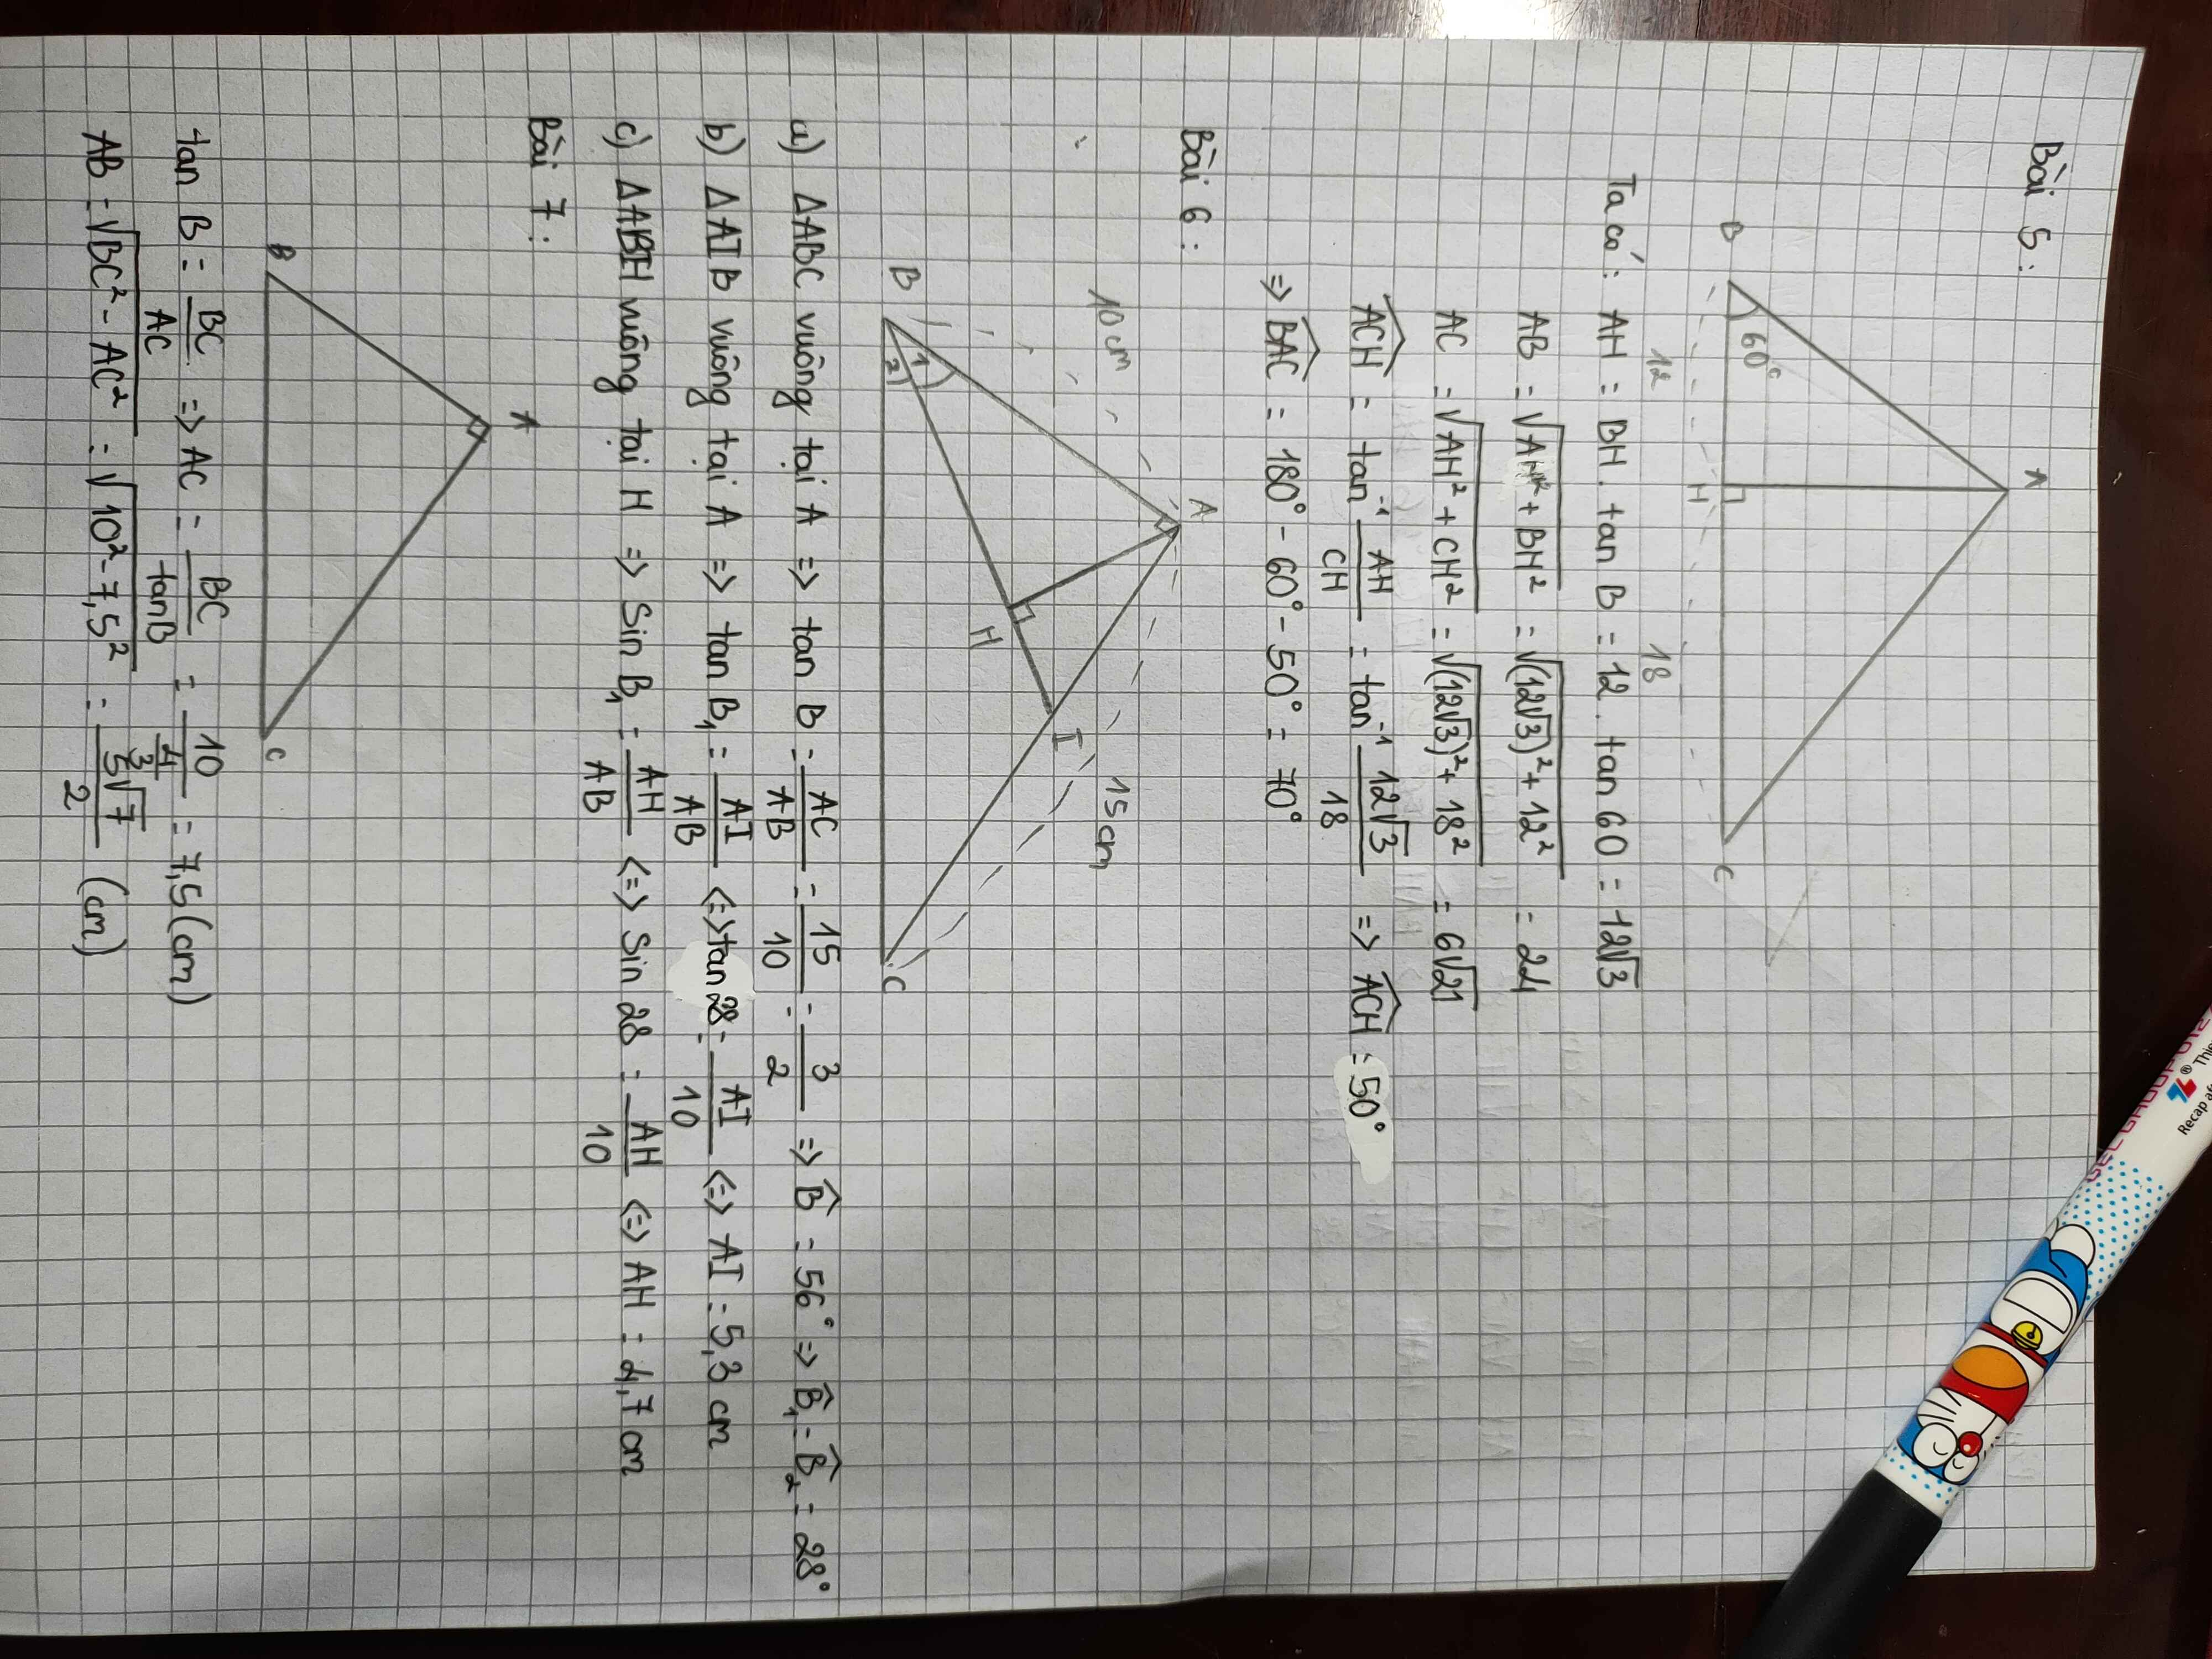 Bài 5:
A
B
60°
H
C
12
18
Ta có: AH = BH. tan B = 12. tan 60 = 12√3
AB = √(AH² + BH²) = √((12√3)² + 12²) = 24
AC = √(AH² + CH²) = √((12√3)² + 18²) = 6√21
ACH^ = tan⁻¹ AH/CH = tan⁻¹ 12√3/18 => ACH^ = 50°
=> BAC^ = 180° - 60° - 50° = 70°
Bài 6:
A
10 cm
15 cm
B
1
2
H
I
C
a) ΔABC vuông tại A => tan B = AC/AB = 15/10 = 3/2 => B^ = 56° => B^₁ = B^₂ = 28°
b) ΔAIB vuông tại A => tan B₁ = AI/AB <=> tan 28 = AI/10 <=> AI = 5,3 cm
c) ΔABH vuông tại H => Sin B₁ = AH/AB <=> Sin 28 = AH/10 <=> AH = 4,7 cm
Bài 7:
A
B
C
tan B = BC/AC => AC = BC/tan B = 10/(4/3) = 7,5 (cm)
AB = √(BC² - AC²) = √(10² - 7,5²) = 5√7/2 (cm)
Thie
Recap af